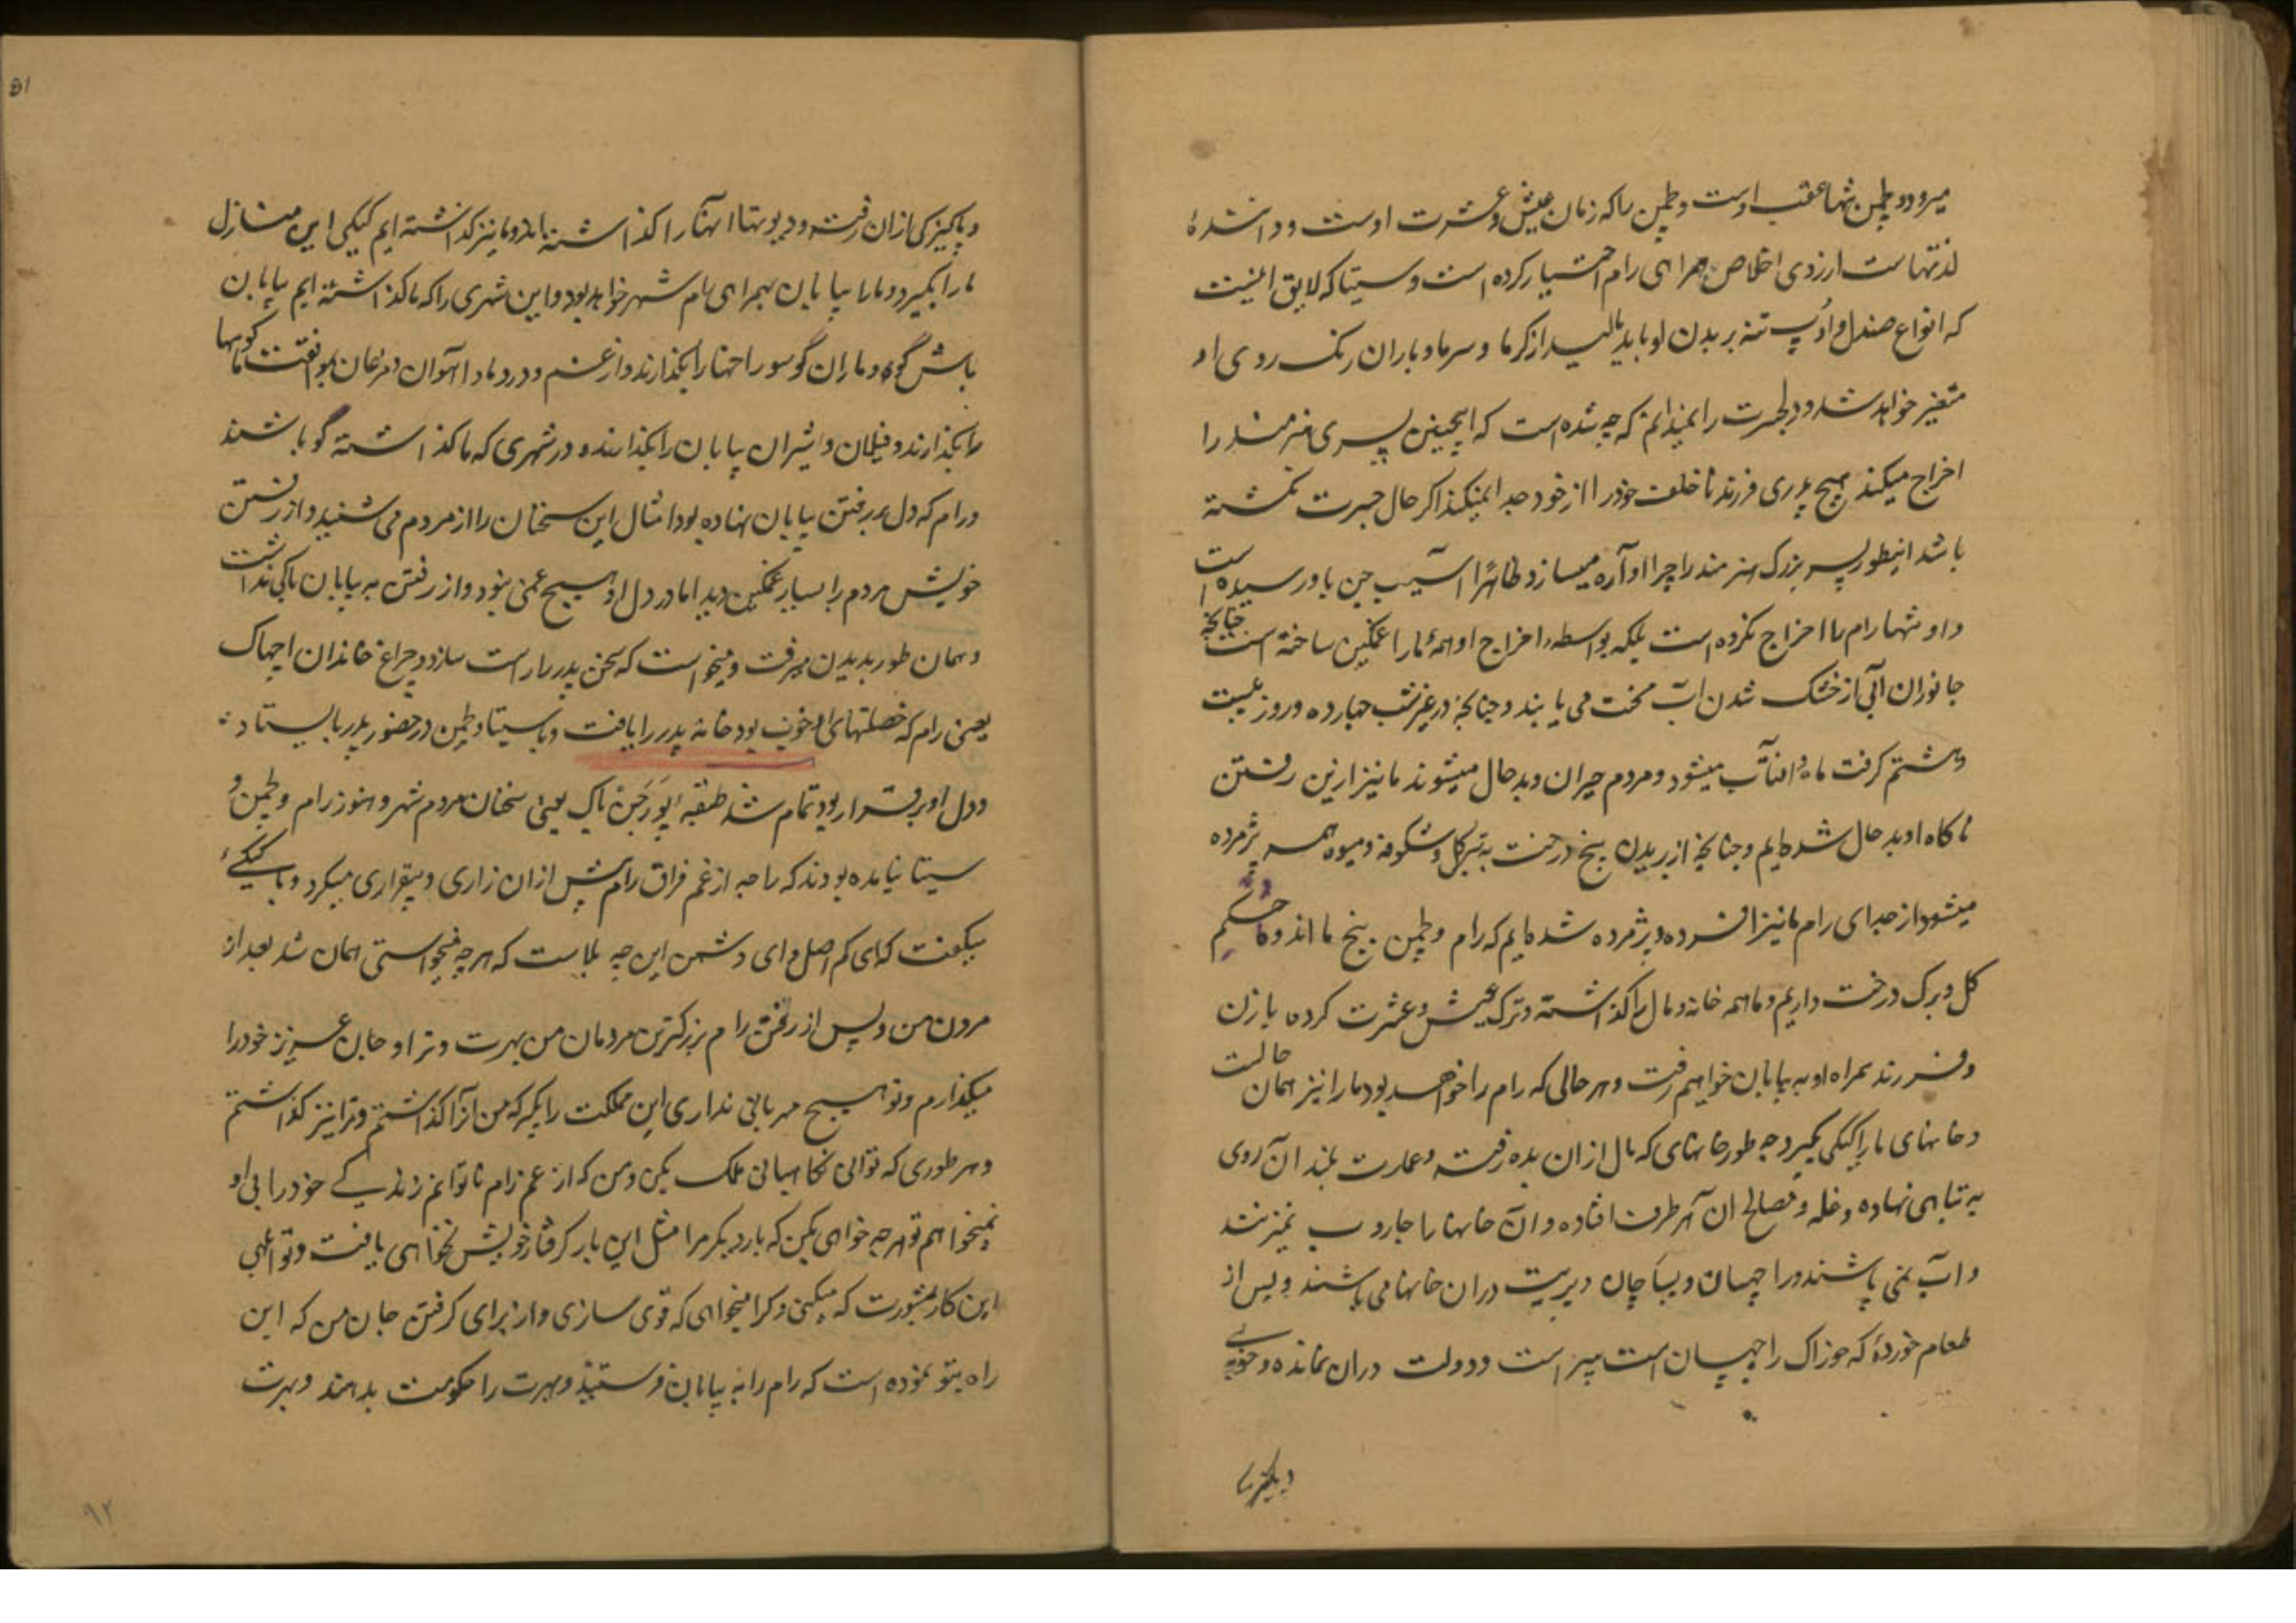 میرود و لچمن تنها عقب اوست و لچمن را که زمان عیش و عشرت اوست و دانندهٔ
لذتهاست ارزوی اخلاص همراهی رام اختیار کرده است و سیتا که لایق اینست
که انواع صندل و بر بدن او باید مالید از گرما و سرما و باران رنک روی او
متغیر خواهد شد و را نمیدانم که چه شده است که اینچنین پسری هنرمند را
اخراج میکند هیچ پدری فرزند ناخلف خود را از خود جدا نمیکند اگر حال جسرت نکشته
باشد اینطور پسر بزرک هنرمند را چرا آواره میسازد ظاهرا آسیب جن باو رسیده است
و او تنها رام را اخراج نکرده است بلکه بواسطه اخراج او همهٔ ما را غمکین ساخته است چنانچه
جانوران آبی از خشک شدن آب محنت می یابند و چنانچه در غیر شب چهارده و روز بیست
و هشتم کرفت ماه و افتآب میشود و مردم حیران و بدحال میشوند ما نیز ازین رفتن
ناکاه او بدحال شده ایم و چنانچه از بریدن بیخ درخت برک و کل و شکوفه و میوه همه پژمرده
میشود از جدای رام ما نیز افسرده و پژمرده شده ایم که رام و لچمن بیخ ما اند و ما حکم
کل و برک درخت داریم و ما همه خانه و مال را کذاشته و ترک عیش و عشرت کرده با زن
و فرزند همراه او به بیابان خواهیم رفت و هر حالی که رام را خواهد بود ما را نیز همان حالت
و خانهای ما را کیکی بکیرد چه طور خانهای که مال ازان بدر رفته و عمارت بلند آن روی
به تباهی نهاده و غله و مصالح ان هر طرف افتاده و آن خانها را جاروب نمیزنند
و آب نمی پاشند و راچهسان و پساچان و پریت دران خانها می باشند و پس از
طعام خوردهٔ که خوراک راچهسان است پر است و دولت دران نمانده و خوبی
و پاکیزکی
و پاکیزکی ازان رفته و دیوتها آنها را کذاشته اند و ما نیز کذاشته ایم کیکی این منازل
ما را بکیرد و ما را بیابان بهمراهی رام شهر خواهد بود و این شهری را که ما کذاشته ایم بیابان
باش کو و ماران کو سوراخها را بکذارند و از غم و درد ما و آهوان و مرغان کوهها
را بکذارند و فیلان و شیران بیابان را بکذارند و در شهری که ما کذاشته کو باشند
و رام که دل بر رفتن بیابان نهاده بود امثال این سخنان را از مردم می شنید و از رفتن
خویش مردم را بسیار غمکین دید اما در دل او هیچ غمی نبود و از رفتن به بیابان باکی نداشت
و همان طور بدیدن میرفت و میخواست که سخن پدر را راست سازد و چراغ خاندان اچهواک
یعنی رام که خصلتهای او خوب بود خانه پدر را یافت و با سیتا و لچمن در حضور پدر بایستاد
و دل او برقرار بود تمام شد طبقه پورجن باک یعنی سخنان مردم شهر و هنوز رام و لچمن و
سیتا نیامده بودند که راجه از غم فراق رام پیش ازان زاری و بیقراری میکرد و با کیکئ
میکفت که ای کم اصل و ای دشمن این چه بلاست که هر چه میخواستی همان شد بعد از
مردن من و پس از رفتن رام بزرکترین مردمان من بهرت و ترا و جان عزیز خود را
میکذارم و تو هیچ مهربانی نداری این مملکت را بکیر که من آنرا کذاشتم و ترا نیز کذاشتم
و هر طوری که توانی نکاهبانی ملک بکن و من که از غم رام ناتوانم زندکی خود را بی او
نمیخواهم تو هر چه خواهی بکن که بار دیکر مرا مثل این بار کرفتار خویش نخواهی یافت و تو
این کار بمشورت که میکنی و کرا میخواهی که قوی سازی و از برای کرفتن جان من که این
راه بتو نموده است که رام را به بیابان فرستند و بهرت را حکومت بدهند و بهرت
٩٢